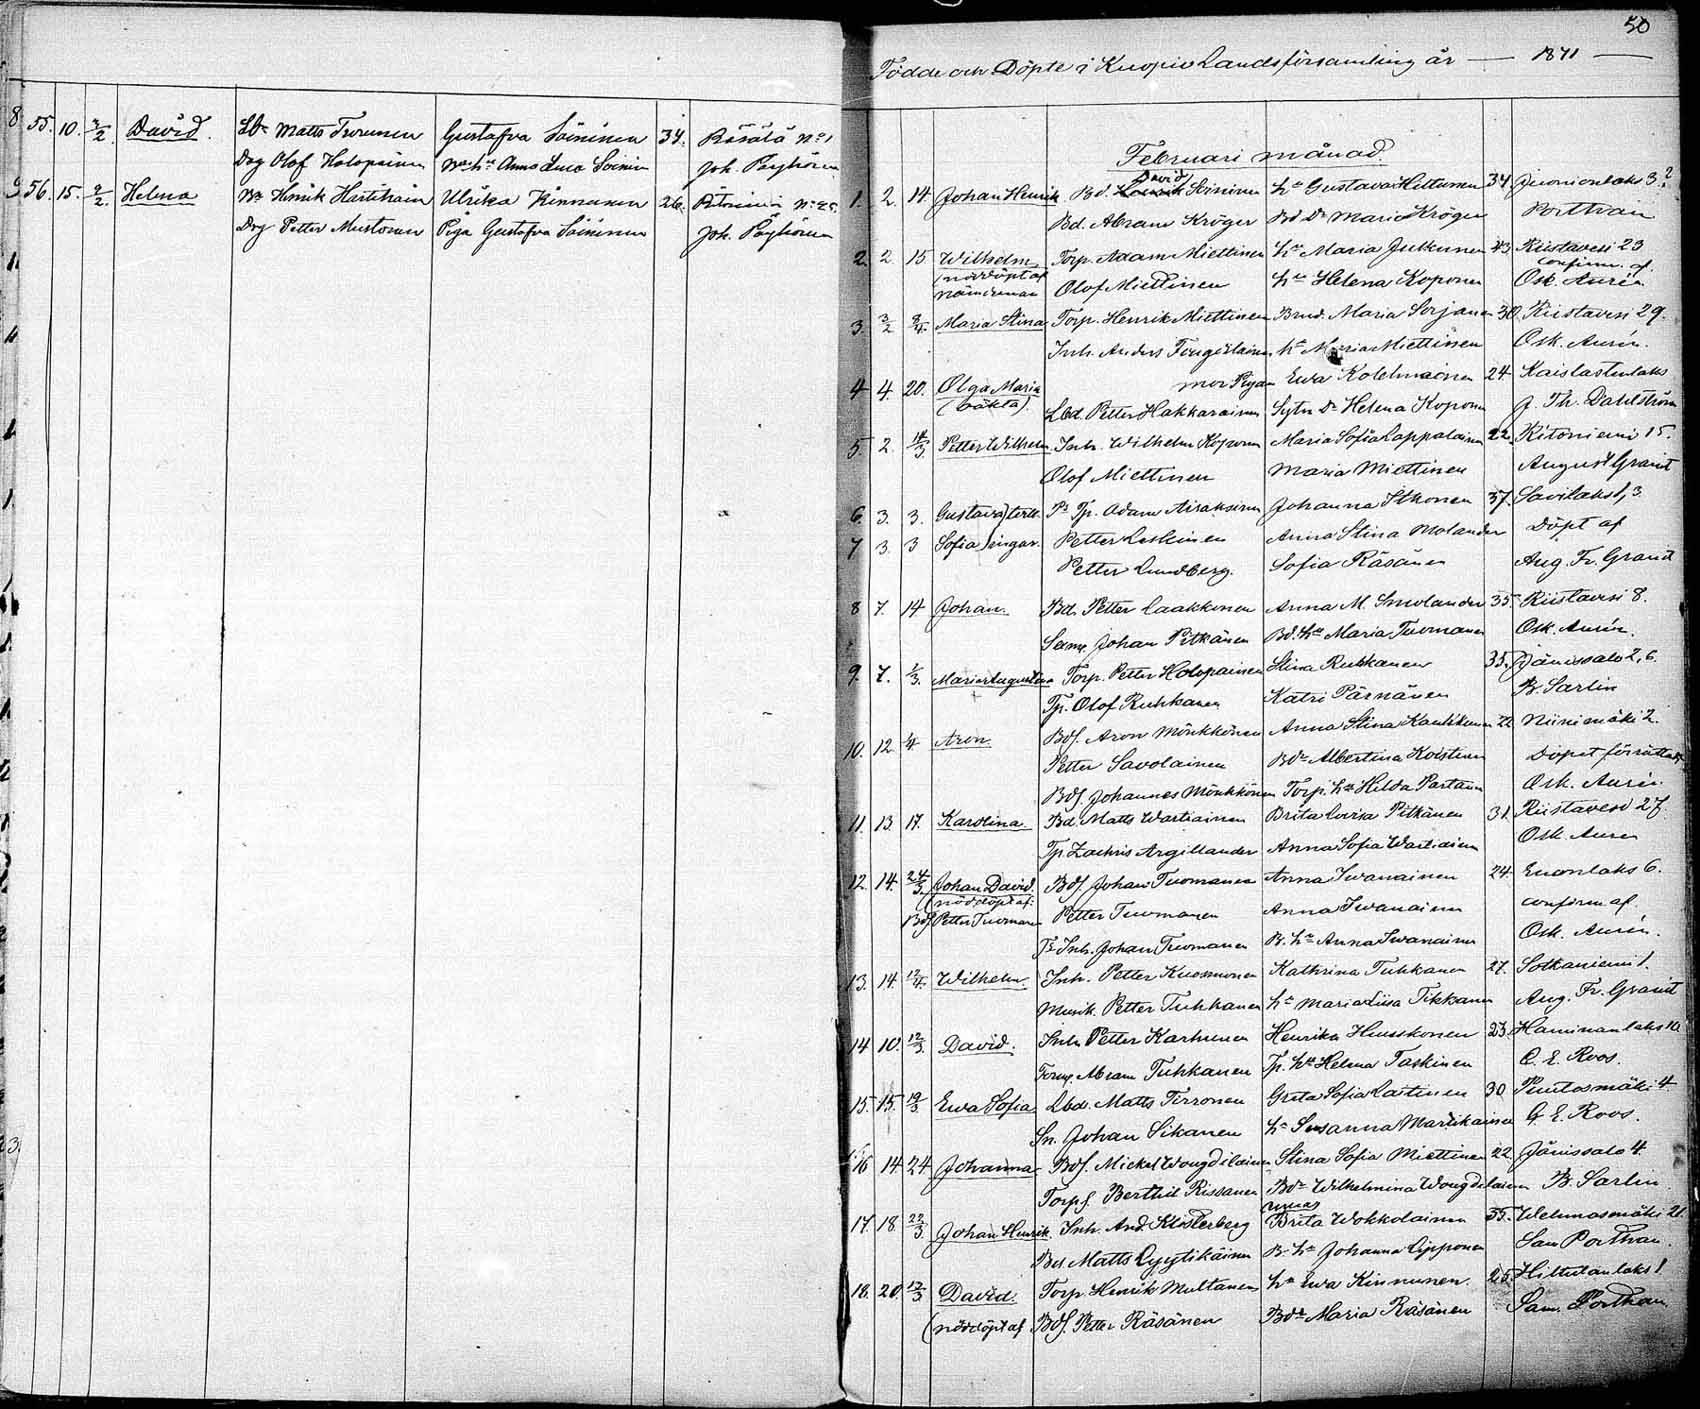 55. 10. 3/2. David. Lbr Matts Turunen Gustafva Soininen 34. Räsälä No 1
Drg Olof Holopainen Anna Lovisa Soinin Joh. Pöyhönen
56. 15. 9/2. Helena Henrik Hartikain Ulrika Kinnunen 26. Ritoniemi No 25.
Drg Petter Mustonen Piga Gustafva Soininen Joh. Pöyhönen
50
Födde och Döpte i Kuopio Landsförsamling år — 1871 —
Februari månad.
David
1. 2. 14. Johan Henrik Bd. Soininen hu Gustava Hiltunen 34 3
Bd. Abram Kröger Bd. Dr Maria Kröger Porthan
2. 2. 15 Wilhelm Torp. Adam Miettinen hu Maria Jutkunen 43. Riistavesi 23
(nöddöpt af confirm. af
nämdeman Olof Miettinen hu Helena Koponen Osk. Aurén
3. 3/2 8/4. Maria Stina Torp. Henrik Miettinen Maria Sorjanen 30. Riistavesi 29.
Inh. Anders hu Maria Miettinen Osk. Aurén.
4 4. 20. Olga Maria mor Pigan Ewa Kolehmainen 24. Kaislastenlaks
(oäkta) Lbd. Petter Hakkarainen Sytn Dr Helena Koponen J. Th. Dahlström
5. 2. 12/3. Petter Wilhelm Inh. Wilhelm Koponen Maria Sofia Lappalainen 22. Ritoniemi 15.
Olof Miettinen Maria Miettinen August Granit
6. 3. 3. Gustava) tvill. Tp. Adam Airaksinen Johanna Itkonen 37. Savilaks 1, 3
7 3. 3 Sofia) ingar. Petter Leskinen Anna Stina Molander Döpt af
Petter Lundberg. Sofia Räsänen Aug. Fr. Granit
8 7. 14 Johan. Bd. Petter Laakkonen Anna M. Smolander 35. Riistavesi 8.
Johan Pitkänen Bd. hu Maria Tuomanen Osk. Aurén.
9. 7. 5/3. Maria Augustina Torp. Petter Holopainen Stina Ruhkanen 35. Jänissalo 2, 6.
Tp. Olof Ruhkanen Katri Pärnänen B. Sarlin
10. 12. 4 Aron Bds. Aron Mönkkönen Anna Stina 22. Niinimäki 2.
Petter Savolainen Bdr Albertina Koistinen Döpet förrättadt
Bds. Johannes Mönkkönen Torp. hu Hilda Partanen Osk. Aurén.
11. 13. 17. Karolina. Bd. Matts Wartiainen Brita Lovisa Pitkänen 31. Riistavesi 27.
Tp. Zachris Argillander Anna Sofia Wartiainen Osk. Aurén
12. 14. 24/3. Johan David. Bds. Johan Tuomanen Anna Iwanainen 24. Enonlaks 6.
(nöddöpt af: confirm. af.
Bds Petter Tuomanen Petter Tuomanen Anna Iwanainen
Inh. Johan Tuomanen B. hu Anna Iwanainen Osk. Aurén.
13. 14. 12/4. Wilhelm. Inh. Petter Kuosmonen Kathrina Tuhkanen 27. Sotkaniemi 1.
Musik. Petter Tuhkanen hu Maria Liisa Tikkanen Aug. Fr. Granit
14 10. 12/3. David. Inh. Petter Karhunen Henrika Huuskonen 23. Haminanlaks 10
Abram Tuhkanen Tp. hu Helena Taskinen G. E. Roos.
15. 15. 19/3 Ewa Sofia Lbd. Matts Tirronen Greta Sofia Lastunen 30. Puutosmäki 4
Sn. Johan Sikanen hu Susanna Martikainen G. E. Roos.
16 14 24 Johanna Bds. Mickel Wougdilainen Stina Sofia Miettinen 22. Jänissalo 4.
Torps. Berthil Rissanen Bdr Wilhelmina Wougdilainen B. Sarlin.
17. 18. 22/3. Johan Henrik. Inh. And. Klosterberg Brita Wokkolainen 35. Wehmasmäki 21.
Bd. Matts Lyytikäinen B. hu Johanna Lipponen Sam Porthan.
18. 20. 12/3 David. Torp. Henrik Multanen hu Ewa Kinnunen. 25. Hiltulanlaks 1.
(nöddöpt af Bds. Petter Räsänen Bdr Maria Räsänen Sam. Porthan